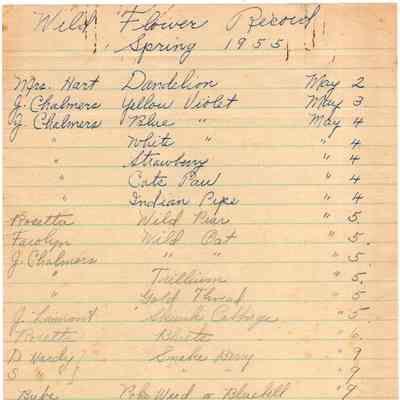 Wild Flower Record
Spring 1955
Mrs. Hart Dandelion May 2.
J. Chalmers Yellow Violet May 3.
J. Chalmers Blue " May 4
" White " " 4
" Strawberry " 4
" Cats Paw " 4
" Indian Pipe " 4
Rosetta Wild Pear " 5.
Wild Oat " 5.
J. Chalmers " " " 5.
" Trillium " 5.
" Gold Thread " 5
J. Lamont Skunk Cabbage " 5.
Rosetta Bluets " 6.
D. Hardy } Snake Berry " 9
S " } " 9
Poke Weed or " 9